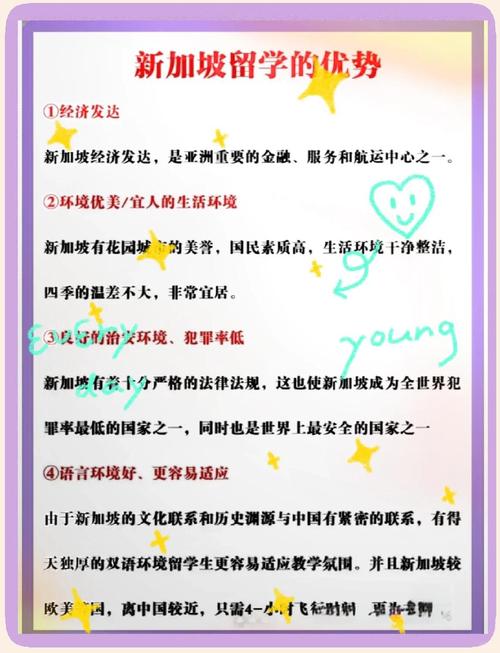 新加坡留学的优势
①经济发达
新加坡经济发达，是亚洲重要的金融、服务和航运中心之一。
②环境优美/宜人的生活环境
新加坡有花园城市的美誉，国民素质高，生活环境干净整洁，
四季的温差不大，非常宜居。
③良好的治安环境、犯罪率低
young
day
新加坡有着十分严格的法律法规，这也使新加坡成为全世界犯
罪率最低的国家之一，同时也是世界上最安全的国家之一
④语言环境好、更容易适应
由于新加坡的文化联系和历史渊源与中国有紧密的联系，有得
天独厚的双语环境留学生更容易适应教学氛围。并且新加坡较
欧美国，离中国较近，只需4-小时飞行时